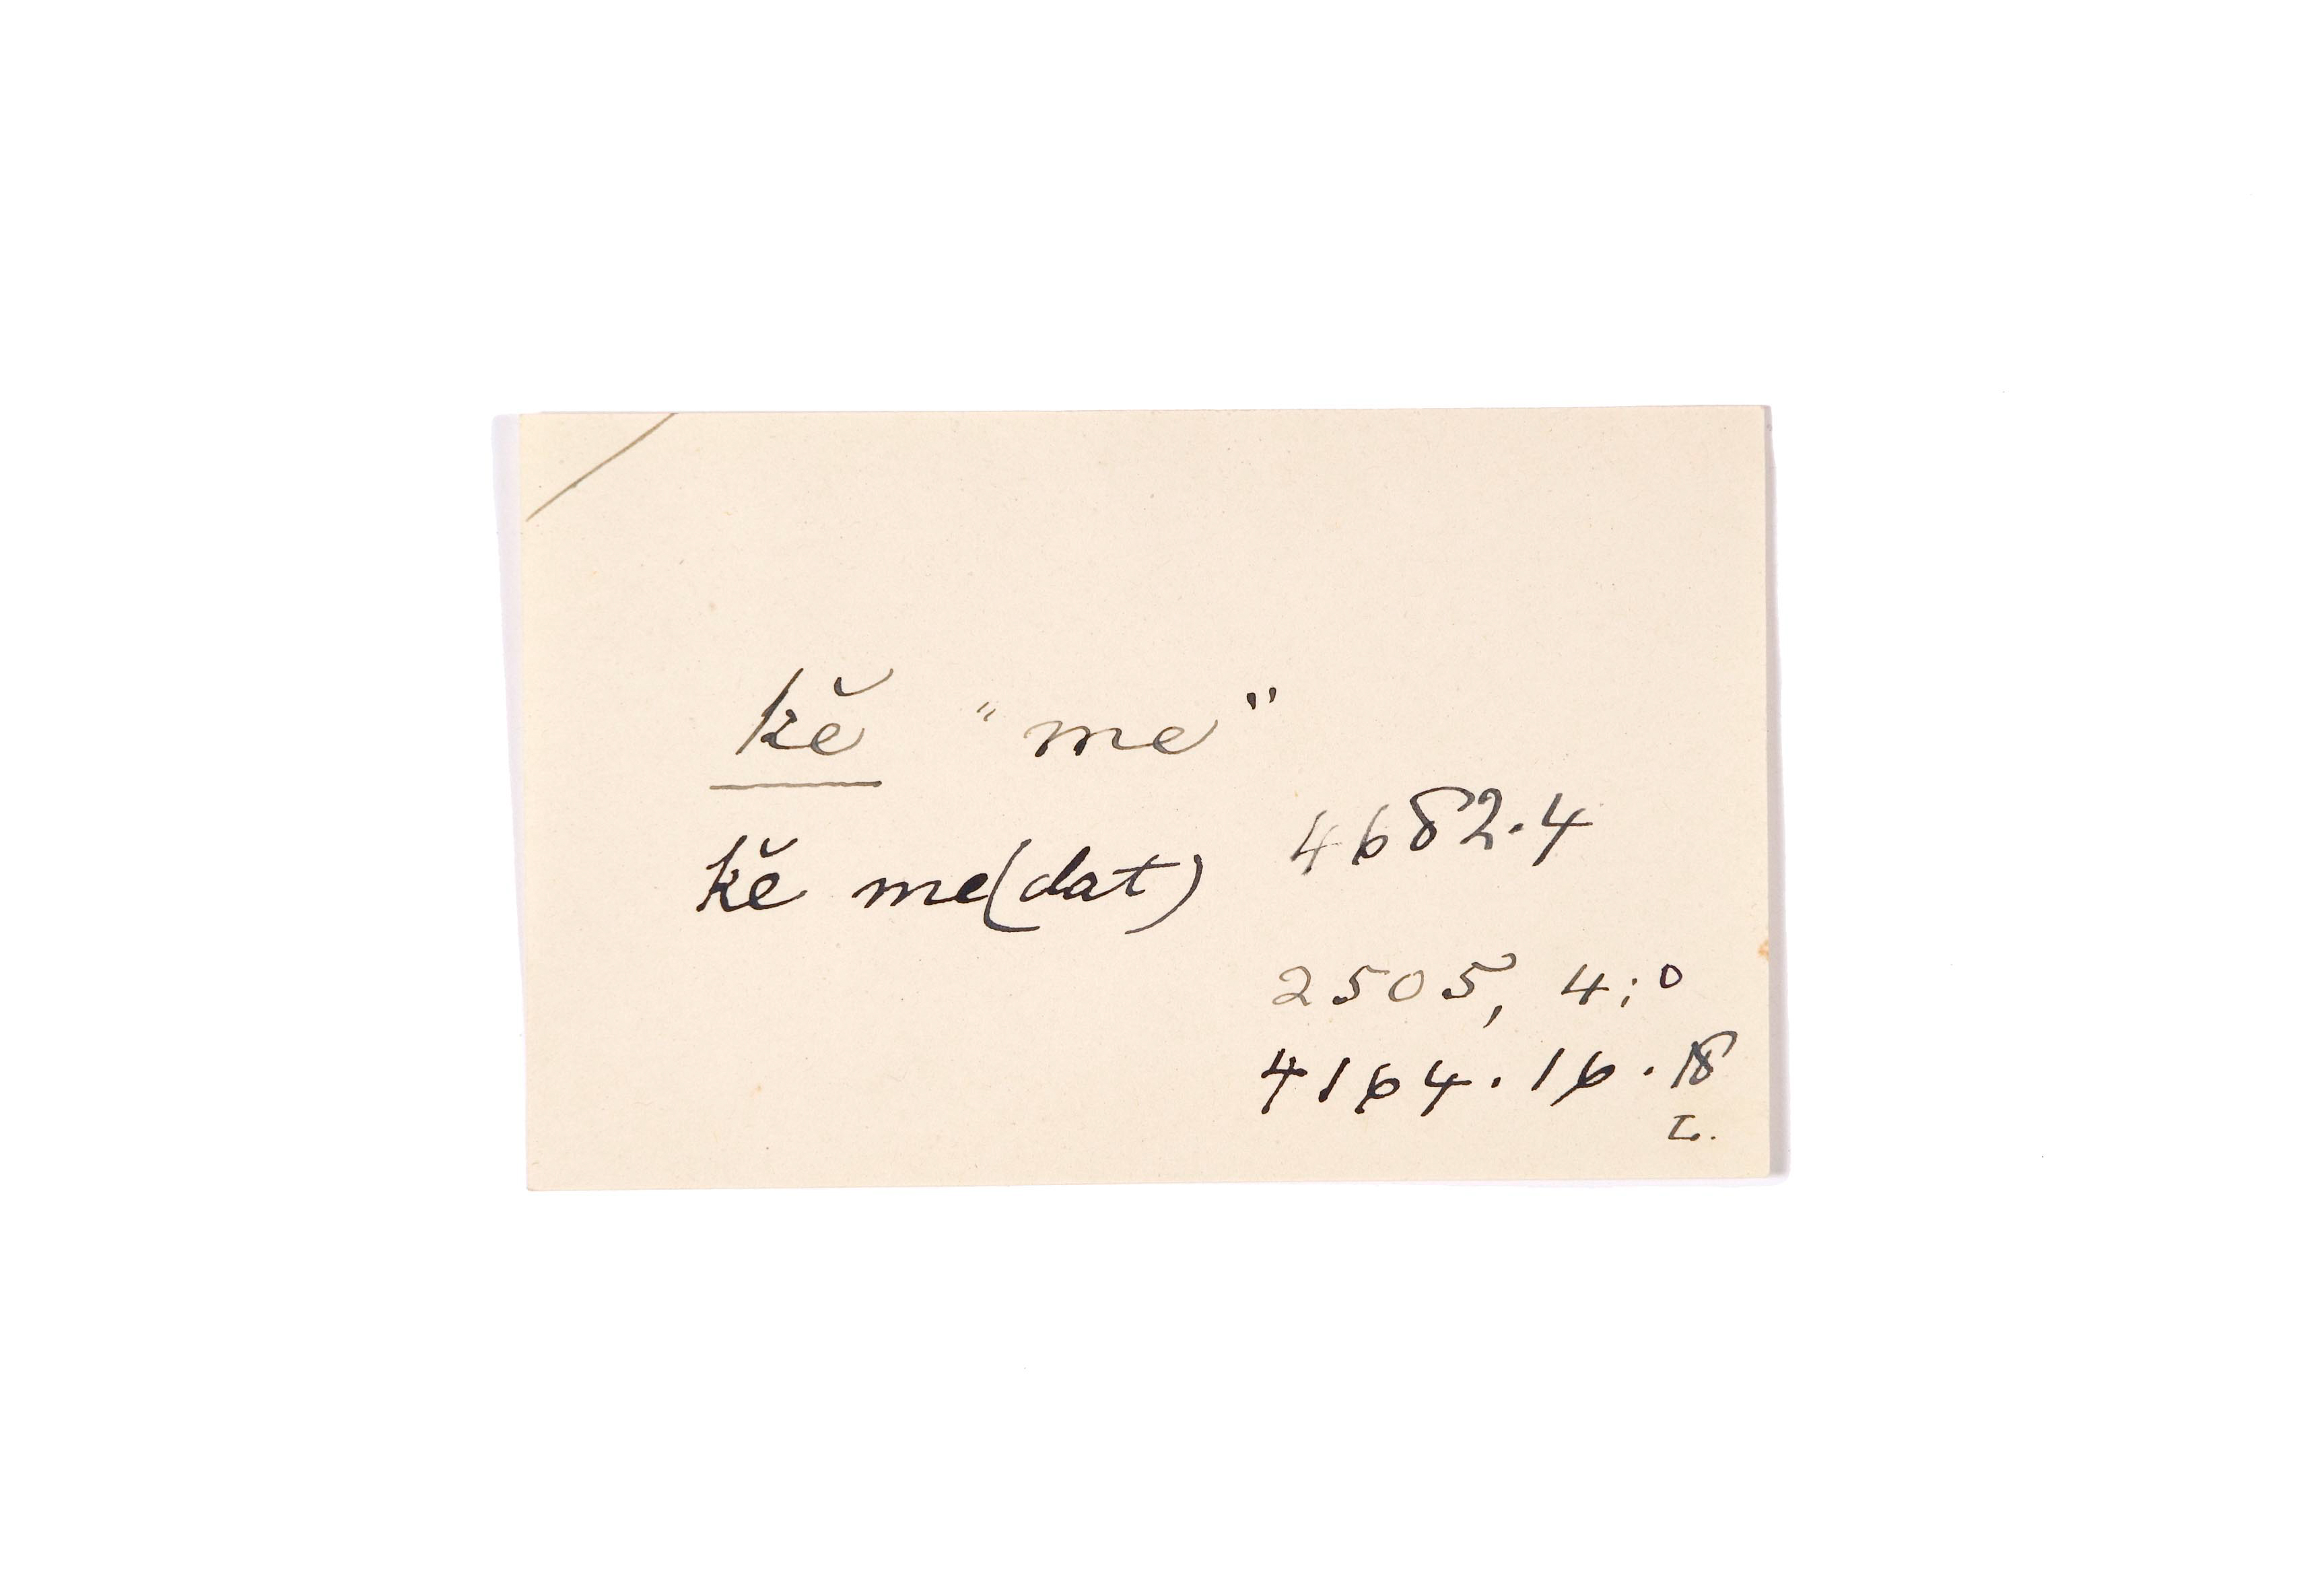 kĕ "me"
kĕ me(dat) 4682.4
2505, 4; 0
4164.16.18
L.